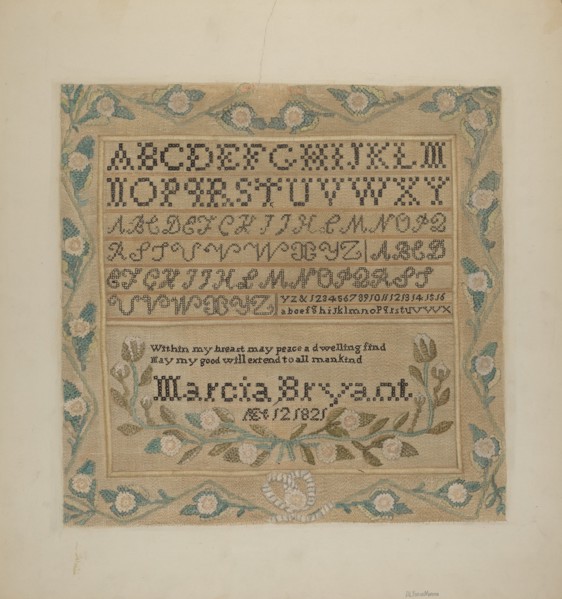 ABCDEFGHIJKLM
NOPQRSTUVWXY
ABCDEFGHIJKLMNOPQ
RSTUVWXYZ ABCD
EFGHIJKLMNOPQRST
UVWXYZ yz&12345678910111213141516
abcefghijklmnopqrstuvwx
Within my breast may peace a dwelling find
May my good will extend to all mankind
Marcia Bryant
Æt 12 1821